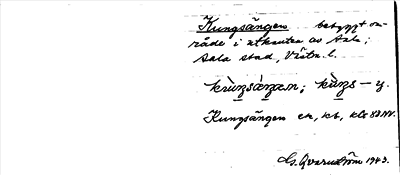 Kungsängen bebyggt om-
råde i utkanten av Sala;
Sala stad, Västm. l.
kùŋsǽŋan; kùŋs – y.
Kungsängen ek, kt, kbl 83 NV.
G. Qvarnström 1943.